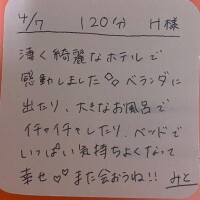 4/7 120分 H様
凄く綺麗なホテルで
感動しました♡♡ベランダに
出たり、大きなお風呂で
イチャイチャしたり、ベッドで
いっぱい気持ちよくなって
幸せ♡♡また会おうね!! みと